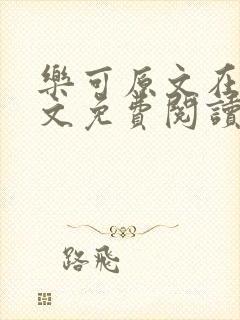 樂可原文在
文免費閱讀
路飛